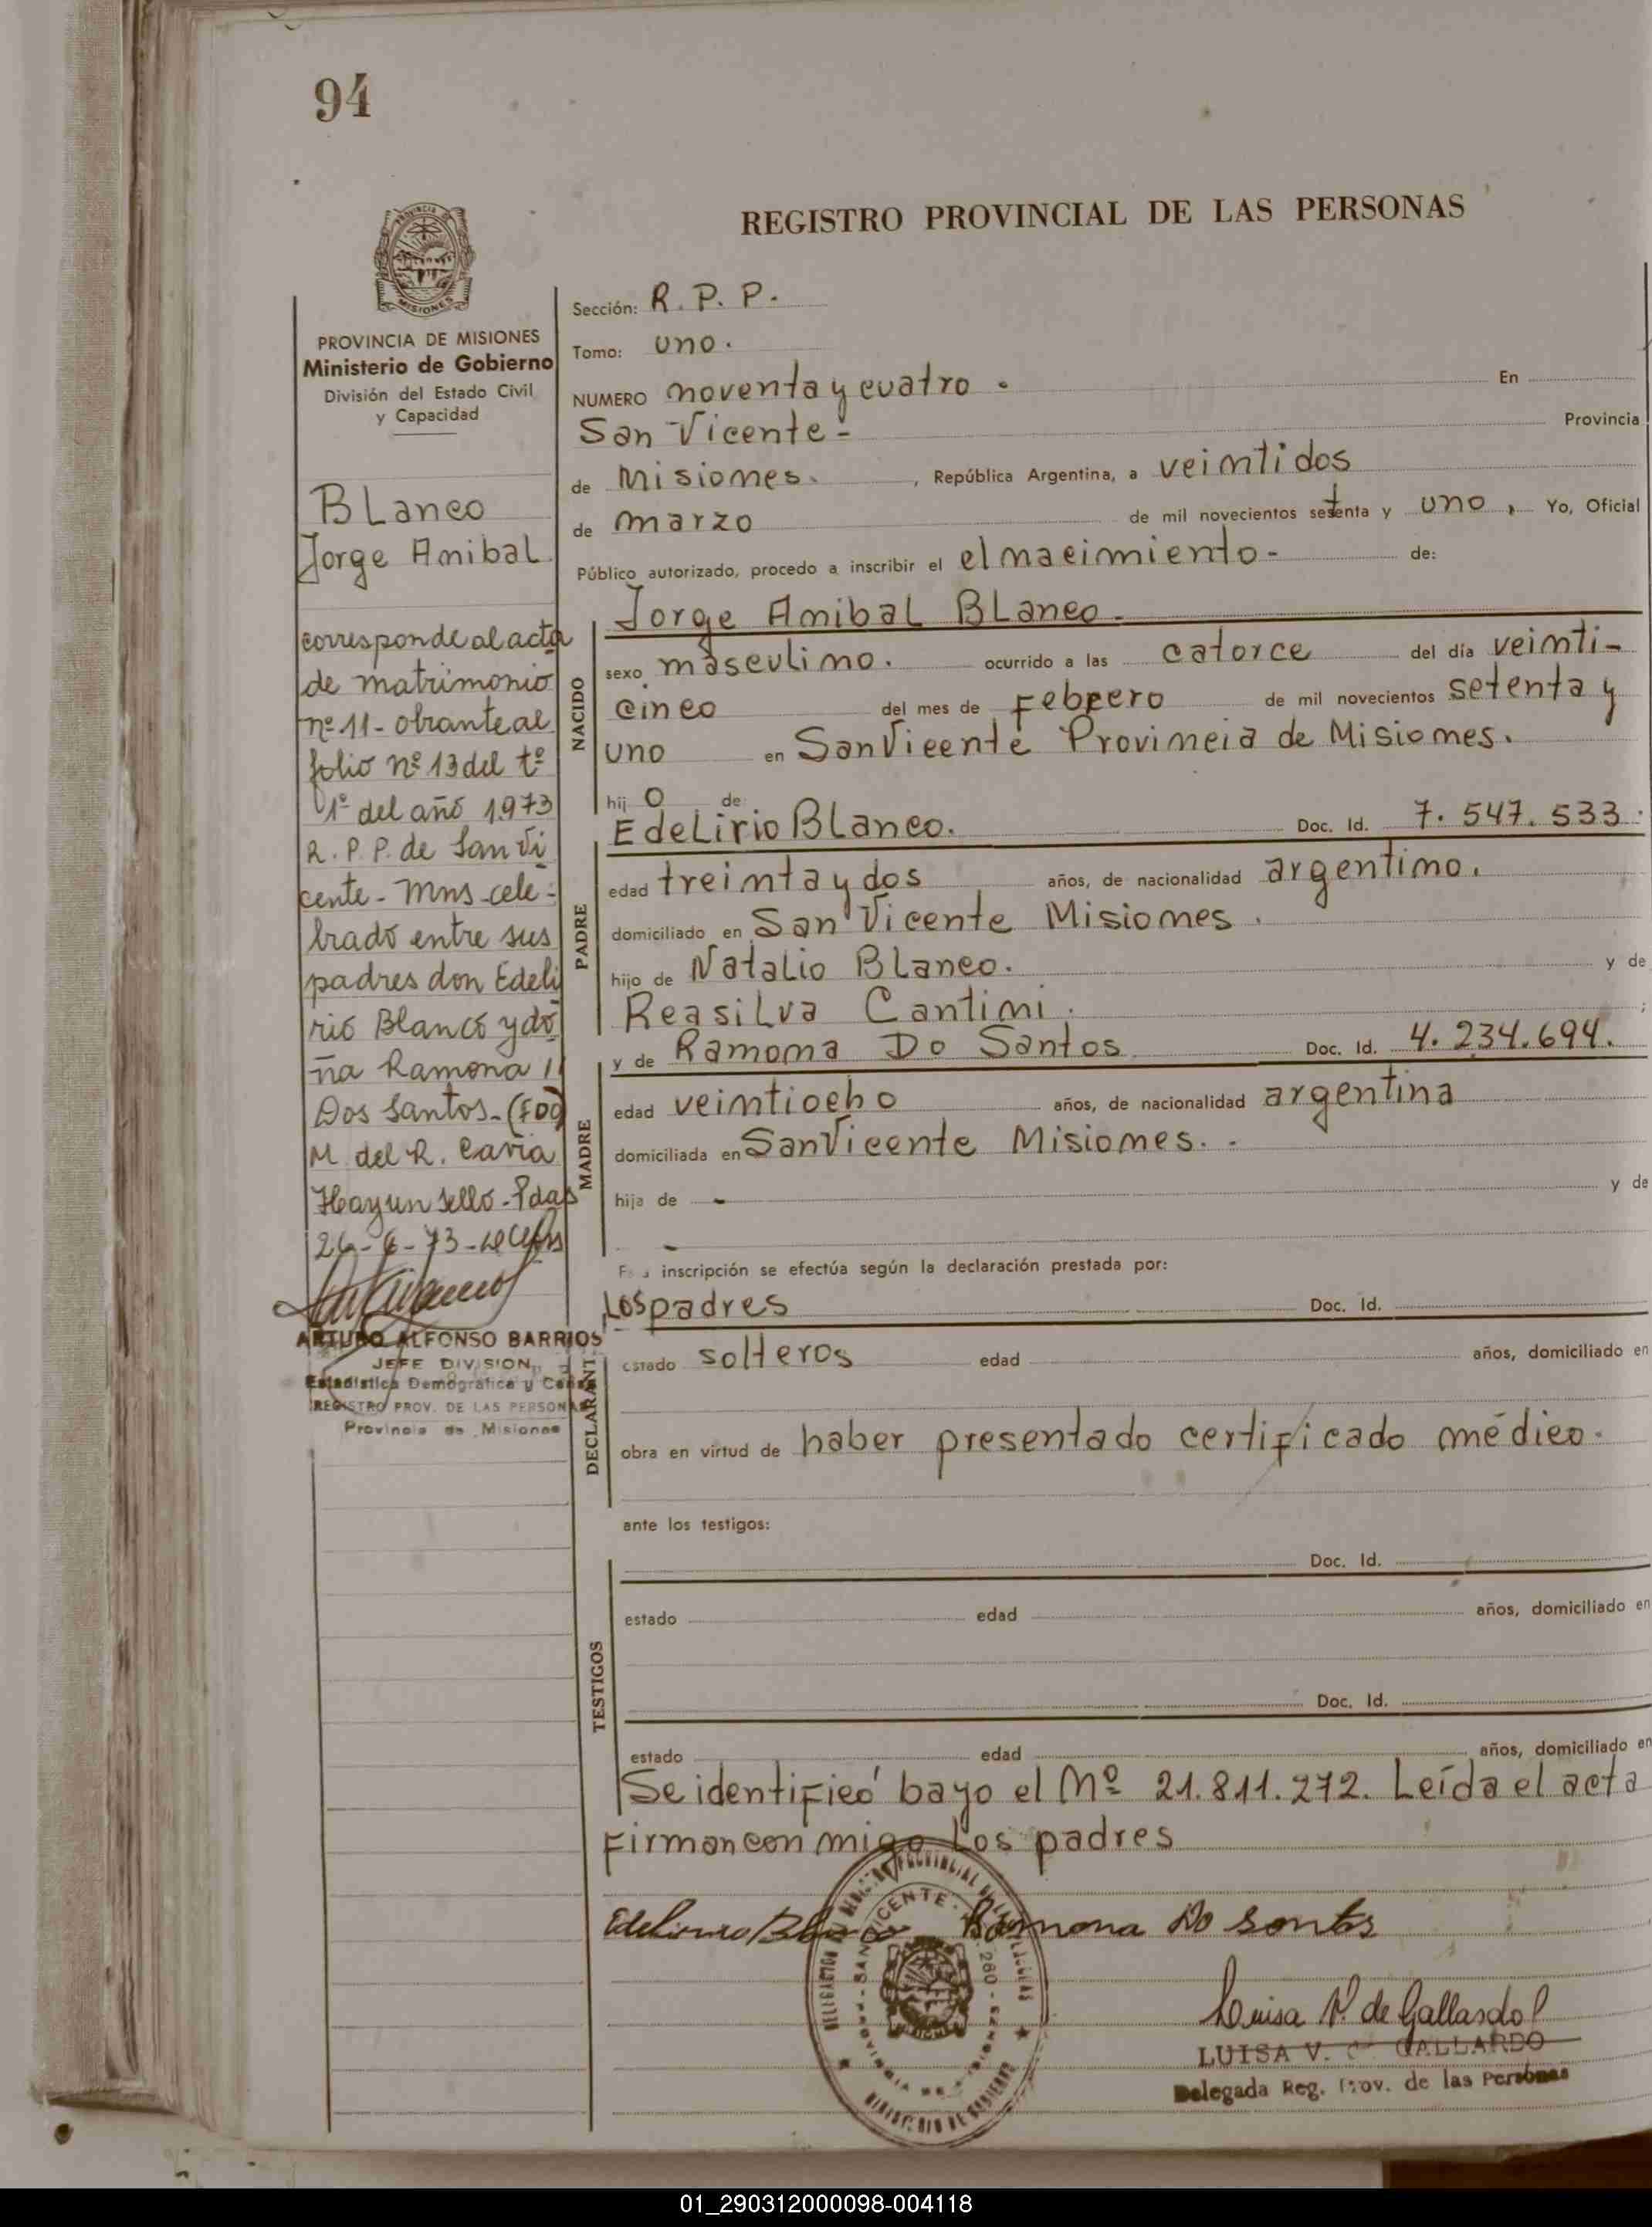 94
REGISTRO PROVINCIAL DE LAS PERSONAS
MISIONES
PROVINCIA DE MISIONES
Ministerio de Gobierno
División del Estado Civil
y Capacidad
Blanco
Jorge Anibal
corresponde al acta
de matrimonio
nº 11 - obrante al
folio nº 13 del tº
1º del año 1973
R. P. P. de San Vi
cente - Mns - cele-
brado entre sus
padres don Edeli
rio Blanco y do
ña Ramona
Dos Santos -
M. del R. Cavia
Hay un sello - Pdas
26-6-73
ARTURO ALFONSO BARRIOS
JEFE DIVISION
Estadística Demográfica y
REGISTRO PROV. DE LAS PERSONAS
Provincia de Misiones
Sección: R. P. P.
Tomo: uno.
NUMERO noventa y cuatro. En
San Vicente - Provincia
de Misiones. , República Argentina, a veintidos
de marzo de mil novecientos setenta y uno, Yo, Oficial
Público autorizado, procedo a inscribir el el nacimiento - de:
NACIDO
Jorge Anibal Blanco -
sexo masculino. ocurrido a las catorce del día veinti-
cinco del mes de Febrero de mil novecientos setenta y
uno en San Vicente Provincia de Misiones.
hij o de
PADRE
Edelirio Blanco. Doc. Id. 7.547.533.
edad treinta y dos años, de nacionalidad argentino.
domiciliado en San Vicente Misiones.
hijo de Natalio Blanco. y de
Reasilva Cantini. ;
MADRE
y de Ramona Do Santos Doc. Id. 4.234.694.
edad veintiocho años, de nacionalidad argentina
domiciliada en San Vicente Misiones. -
hija de - y de
-
inscripción se efectúa según la declaración prestada por:
DECLARANT
Los padres Doc. Id.
estado solteros edad años, domiciliado en
obra en virtud de haber presentado certificado médico.
ante los testigos:
TESTIGOS
Doc. Id.
estado edad años, domiciliado en
Doc. Id.
estado edad años, domiciliado en
Se identificó bayo el Nº 21.811.272. Leída el acta
Firman con migo Los padres
Ramona Do Santos
SAN VICENTE
Luisa V. de Gallardo
LUISA V. GALLARDO
Delegada Reg. Prov. de las Personas
01_290312000098-004118